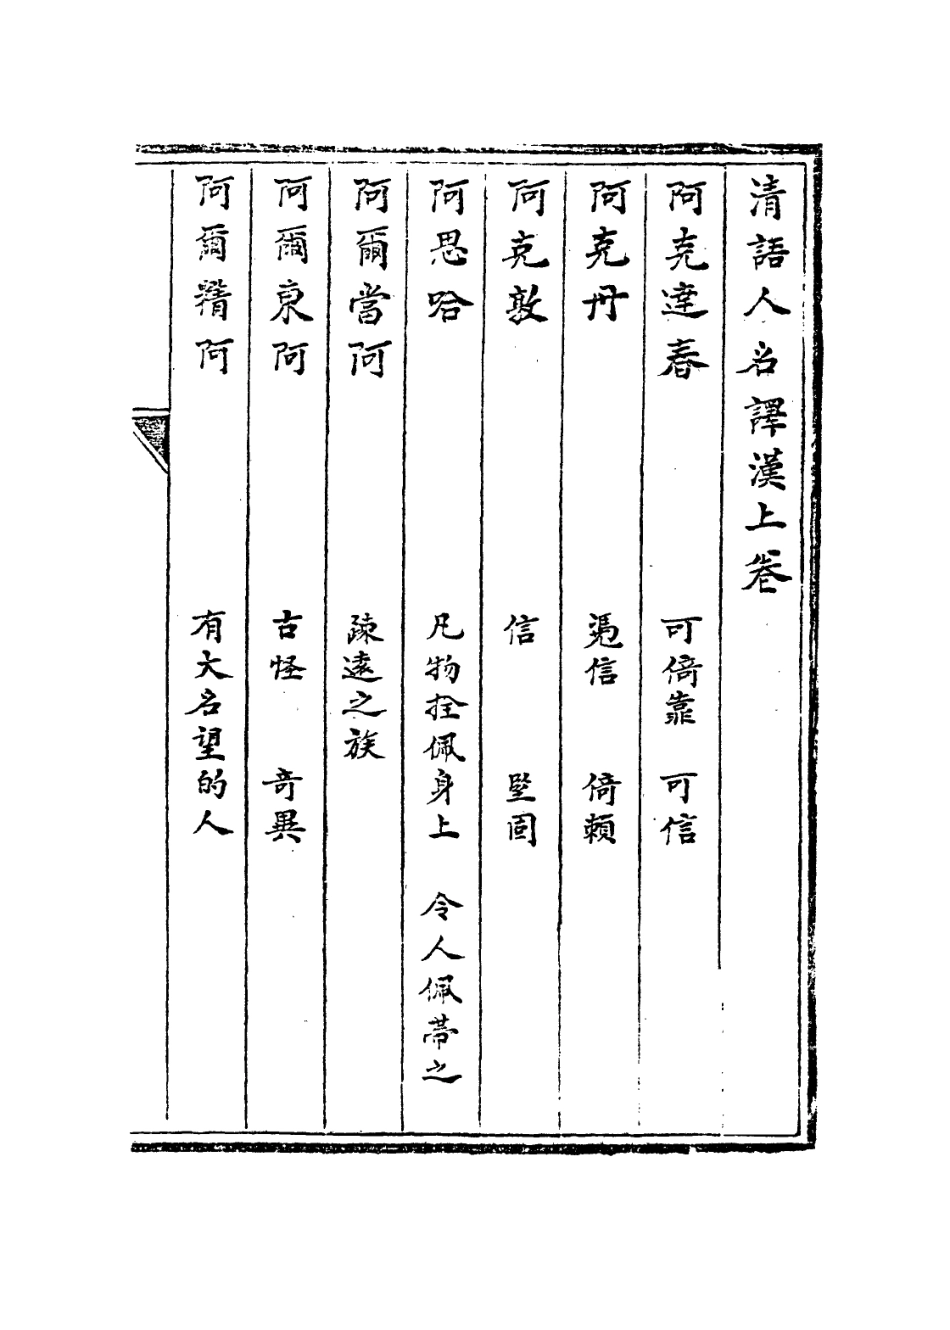 清語人名譯漢上卷
阿克達春 可倚靠 可信
阿克丹 憑信 倚賴
阿克敦 信 堅固
阿思哈 凡物拴佩身上 令人佩帶之
阿爾當阿 疎遠之族
阿爾東阿 古怪 奇異
阿爾精阿 有大名望的人